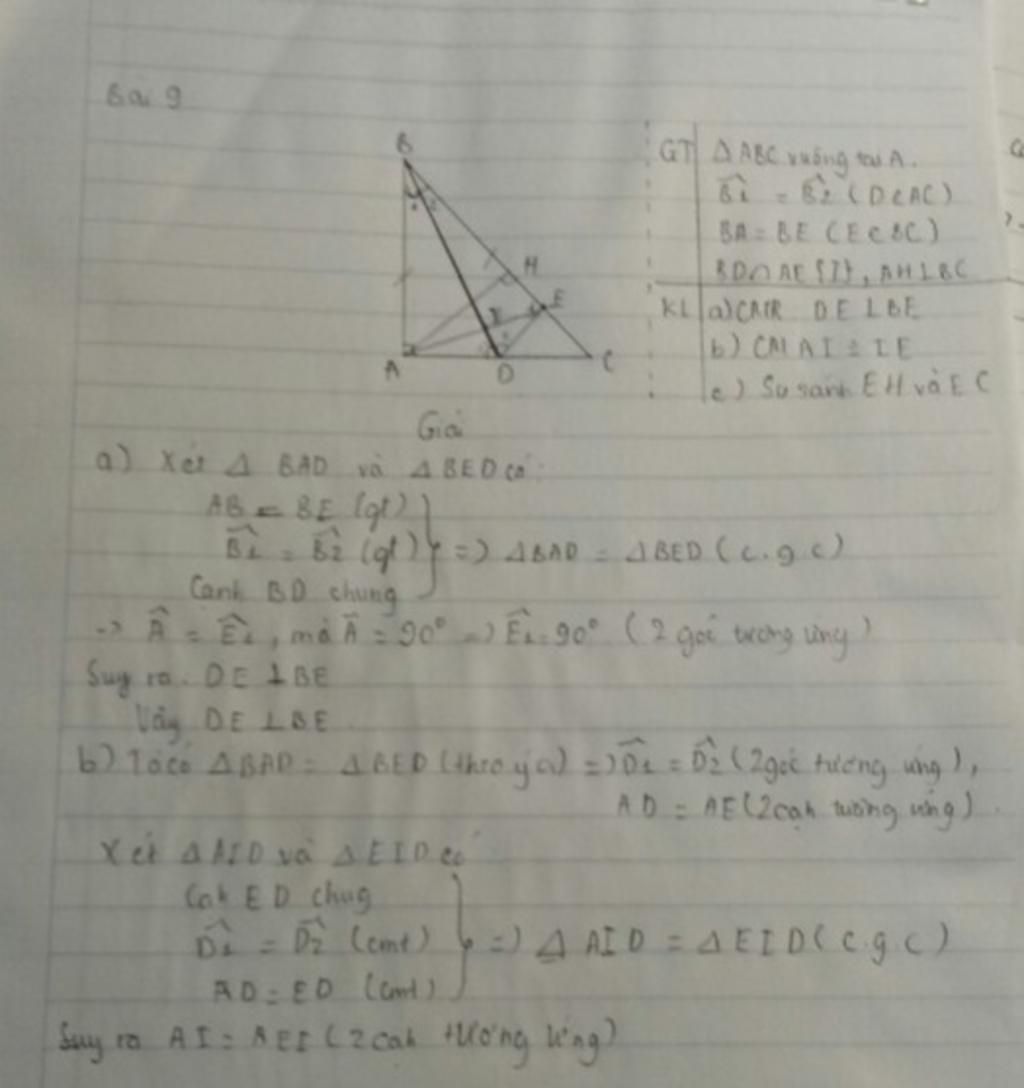 Bài 9
B
H
E
I
A
D
C
GT ΔABC vuông tại A.
B̂1 = B̂2 (D∈AC)
BA = BE (E∈BC)
BD∩AE {I}, AH⊥BC
KL a) CMR DE⊥BE
b) CM AI = IE
c) So sánh EH và EC
Giải
a) Xét Δ BAD và ΔBED có:
AB = BE (gt)
B̂1 = B̂2 (gt) => ΔBAD = ΔBED (c.g.c)
Cạnh BD chung
-> Â = Ê1, mà Â = 90° => Ê1=90° (2 góc tương ứng)
Suy ra: DE⊥BE
Vậy DE⊥BE.
b) Ta có ΔBAD = ΔBED (theo ý a) => D̂1 = D̂2 (2 góc tương ứng),
AD = AE (2 cạh tương ứng).
Xét ΔAID và ΔEID có
Cah ED chug
D̂1 = D̂2 (cmt) => Δ AID = ΔEID (c.g.c)
AD = ED (cmt)
Suy ra AI = AEI (2 cah tương ứng)